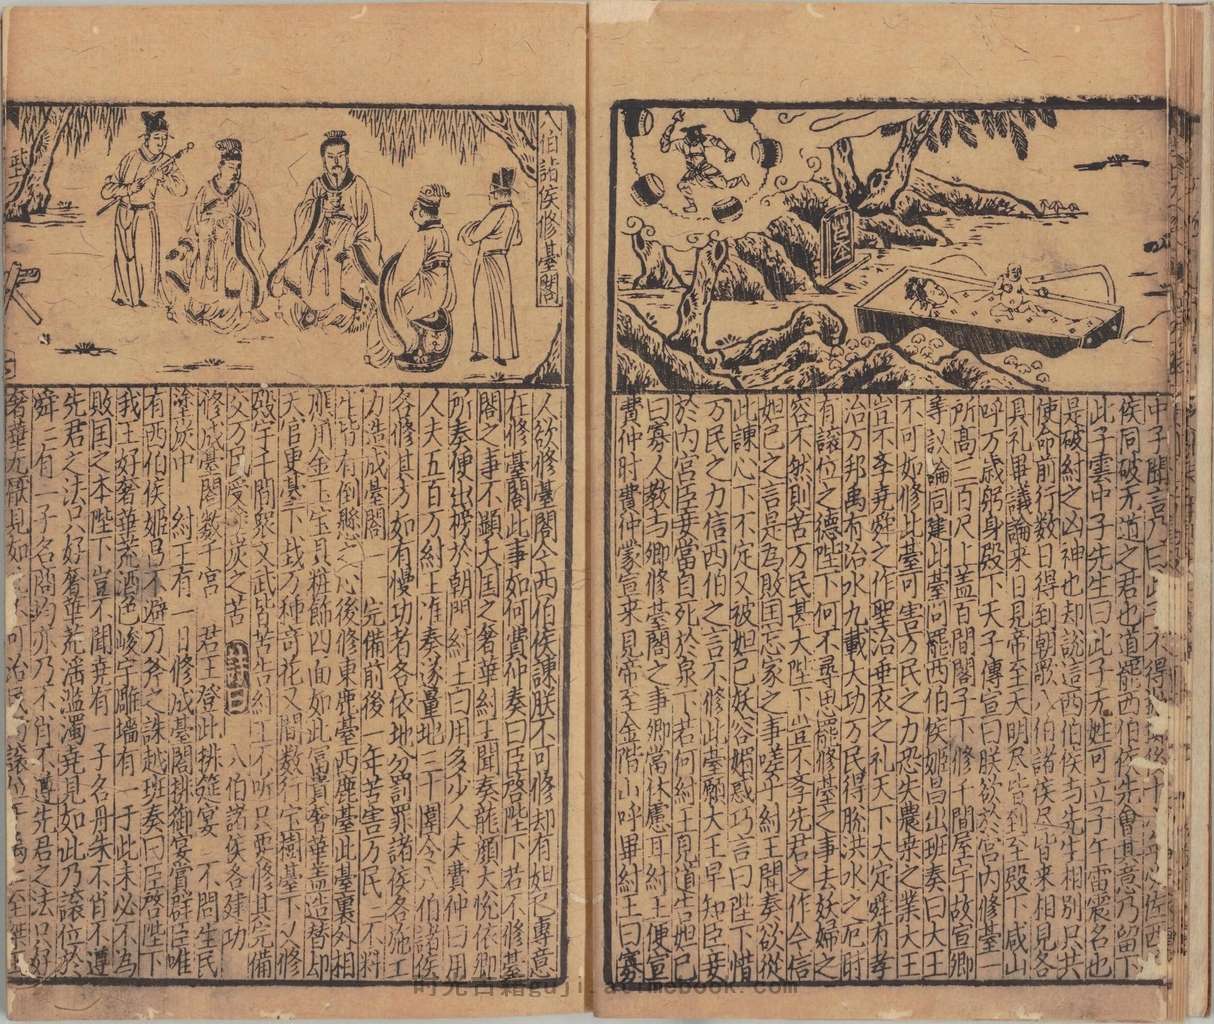 中子聞言
侯同破无道之君也道罷西伯侯先會其意乃留下
此子雲中子先生曰此子无姓可立子午雷震名也
是破紂之凶神也却說這西伯侯与先生相別只共
使命前行数日得到朝歌八伯諸侯尽皆來相見各
具礼畢議論來日見帝至天明尽皆到至殿下咸山
呼万歲躬身殿下天子傳宣曰朕欲於宮内修臺一
所高三百尺上盖百間閣子下修千間屋宇故宣卿
等議論同建此臺問罷西伯侯姬昌出班奏曰大王
不可如修此臺可害万民之力恐失農桒之業大王
豈不孝堯舜之作聖治垂衣之礼天下大定舜有孝
治万邦禹有治水九載大功万民得脫洪水之厄時
有讓位之德陛下何不尋思罷修臺之事去妖婦之
容不然則苦万民甚大陛下豈不孝先君之作今信
妲己之言是為敗国忘家之事嗟乎紂王聞奏欲從
此諫心下不定又被妲己妖容媚惑巧言曰陛下惜
万民之力信西伯之言不修此臺願大王早知臣妾
於内宮臣妾當自死於泉下若何紂王見道告妲己
曰寡人教与卿修臺閣之事卿當休慮耳紂王便宣
費仲时費仲蒙宣來見帝至金階山呼畢紂王曰寡
八伯諸侯修臺閣
武
人欲修臺閣今西伯侯諫朕不可修却有妲己專意
在修臺閣此事如何費仲奏曰臣啓陛下若不修臺
閣之事不顯大国之奢華紂王聞奏龍顔大悅依卿
所奏便出榜於朝門紂王曰用多少人夫費仲曰用
人夫五百万紂王准奏遂量地三十圍令八伯諸侯
各修其方如有慢功者各依地分罰罪諸侯各施工
力造成臺閣一一完備前後一年苦害万民二不料
生皆有倒懸之心後修東鹿臺西鹿臺此臺裏外相
應用金玉宝貝粧飾四面如此富貴奢華盖造替却
天官更臺下栽万種奇花又間数行宝樹臺下又修
殿宇千間聚文武皆苦告紂王不听只要修其完備
父万民受塗炭之苦 八伯諸侯各建功
修成臺閣数千宮 君王登此排筵宴 不問生民
塗炭中 紂王有一日修成臺閣排御宴賞群臣唯
有西伯侯姬昌不避刀斧之誅越班奏曰臣啓陛下
我王好奢華荒酒色峻宇雕墻有一于此未必不為
敗国之本陛下豈不聞堯有一子名丹朱不肖不遵
先君之法只好奢華荒滛濫濁堯見如此乃讓位於
舜二有一子名商均亦乃不肖不遵先君之法只好
時光古籍guji.artimebook.com